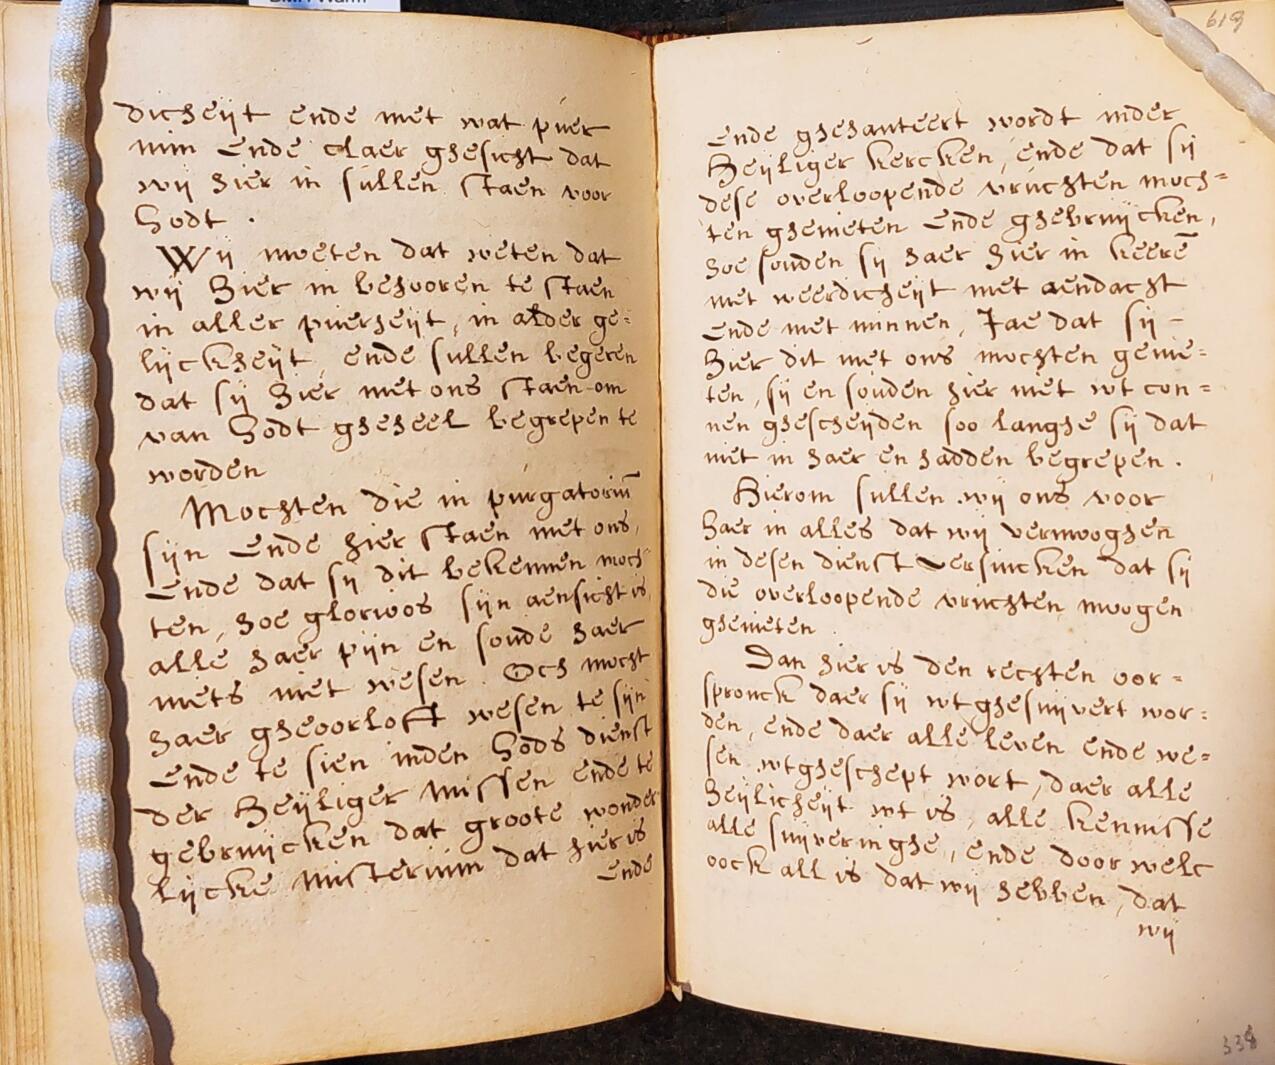 dicheijt ende met wat puer
min ende claer ghesicht dat
wij hier in sullen staen voor
Godt .
Wij moeten dat weten dat
wij hier in behooren te staen
in aller puerheijt, in alder ge=
lijckheijt, ende sullen begeren
dat sij hier met ons staen om
van Godt gheheel begrepen te
worden
Mochten die in purgatoriū
sijn ende hier staen met ons,
Ende dat sij dit bekennen moch=
ten, hoe glorioos sijn aensicht is,
alle haer pijn en soude haer
niets niet wesen. Och mocht
haer gheoorloft wesen te sijn
ende te sien inden Gods dienst
der heijliger missen ende te
gebruijcken dat groote wonder
lijcke misterium dat hier is
ende
613
Ende ghehanteert wordt inder
heijliger kercken, ende dat sij
dese overloopende vruchten moch=
ten ghenieten ende ghebruijcken,
hoe souden sij haer hier in keerē
met weerdicheijt met aendacht
ende met minnen, Jae dat sij -
hier dit met ons mochten genie=
ten, sij en souden hier niet wt con=
nen ghescheijden soo langhe sij dat
niet in haer en hadden begrepen.
Hierom sullen wij ons voor
haer in alles dat wij vermoghen
in desen dienst versincken dat sij
die overloopende vruchten mogen
ghenieten.
Dan hier is den rechten oor=
spronck daer sij wt ghesuijvert wor=
den, ende daer alle leven ende we=
sen wtgheschept wort, daer alle
heijlicheijt wt is, alle kennisse
alle suijveringhe, ende door welc
oock all is dat wij hebben, dat
wij
338